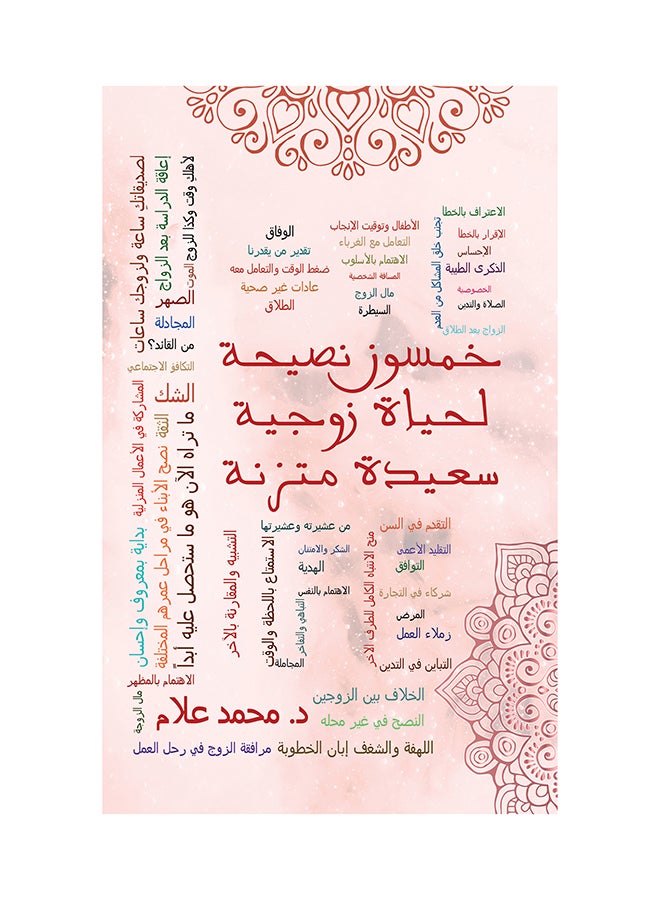 الاعتراف بالخطأ
الإقرار بالخطأ
الإحساس
الذكرى الطيبة
الخصوصية
الصلاة والتدين
الزواج بعد الطلاق
تجنب خلق المشاكل من العدم
الأطفال وتوقيت الإنجاب
التعامل مع الغرباء
الاهتمام بالأسلوب
المسافة الشخصية
مال الزوج
السيطرة
الوفاق
تقدير من يقدرنا
ضغط الوقت والتعامل معه
عادات غير صحية
الطلاق
لأهلك وقت وكذا للزوج
الموت
إعاقة الدراسة بعد الزواج
لصديقاتك ساعة ولزوجك ساعات
الصهر
المجادلة
من القائد؟
التكافؤ الاجتماعي
الشك
خمسون نصيحة
لحياة زوجية
سعيدة متزنة
ما تراه الآن هو ما ستحصل عليه أبداً
الثقة
نصح الأبناء في مراحل عمرهم المختلفة
المشاركة في الأعمال المنزلية
بداية بمعروف وإحسان
الاهتمام بالمظهر
مال الزوجة
التقدم في السن
التقليد الأعمى
التوافق
شركاء في التجارة
المرض
زملاء العمل
التباين في التدين
منح الانتباه الكامل للطرف الآخر
من عشيرته وعشيرتها
الشكر والامتنان
الهدية
الاهتمام بالنفس
التباهي والتفاخر
المجاملة
الاستمتاع باللحظة والوقت
التشبيه والمقارنة بالآخر
الخلاف بين الزوجين
النصح في غير محله
د. محمد علام
اللهفة والشغف إبان الخطوبة
مرافقة الزوج في رحل العمل